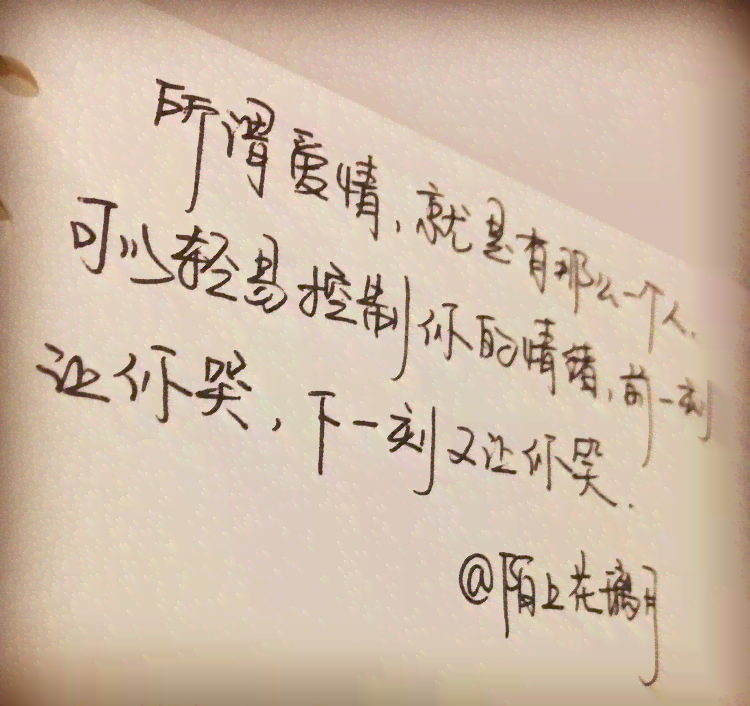 所谓爱情，就是有那么一个人，
可以轻易控制你的情绪，前一刻
让你哭，下一刻又让你哭．
@陌上花璃月